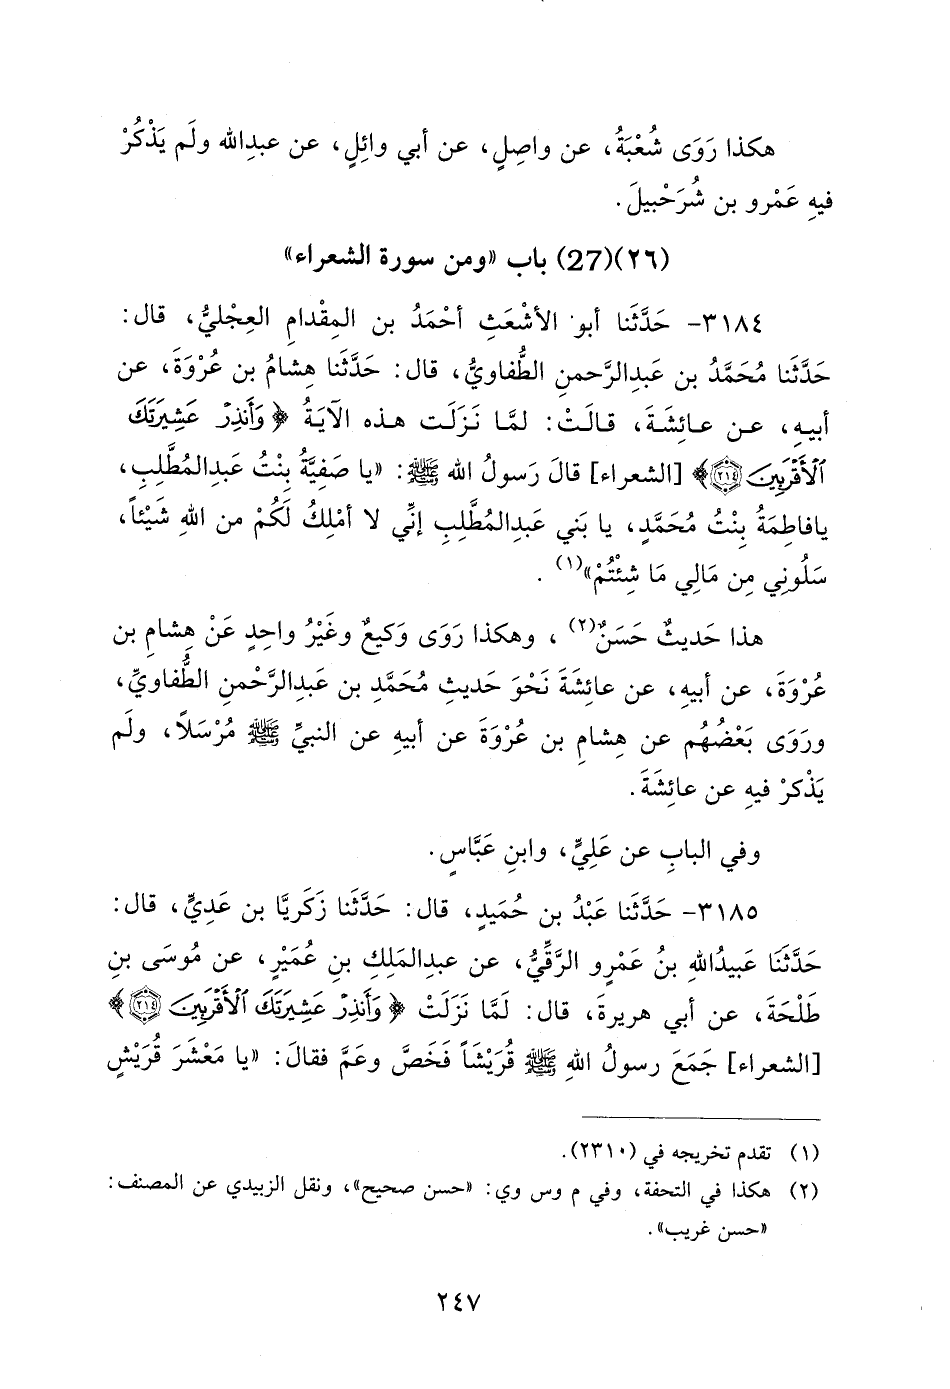 هكذا رَوَى شُعْبَةُ، عن واصِلٍ، عن أبي وائِلٍ، عن عبدِالله ولَم يَذْكُرْ
فيهِ عَمْرو بن شُرَحْبيلَ.
(٢٦)(27) باب «ومن سورة الشعراء»
٣١٨٤- حَدَّثَنا أبو الأشْعَثِ أحْمَدُ بن المِقْدامِ العِجْليُّ، قال:
حَدَّثَنا مُحَمَّدُ بن عَبدِالرَّحمنِ الطُّفاويُّ، قال: حَدَّثَنا هِشامُ بن عُرْوَةَ، عن
أبيهِ، عن عائِشَةَ، قالَتْ: لمَّا نَزَلَت هذه الآيَةُ ﴿وَأَنذِرْ عَشِيرَتَكَ
ٱلْأَقْرَبِينَ ٢١٤﴾ [الشعراء] قالَ رَسولُ الله ﷺ: «يا صَفِيَّةُ بِنْتُ عَبدِالمُطَّلِبِ،
يافاطِمَةُ بِنْتُ مُحَمَّدٍ، يا بَني عَبدِالمُطَّلِبِ إنِّي لا أمْلِكُ لَكُمْ من اللهِ شَيْئاً،
سَلُونِي مِن مَالِي مَا شِئْتُمْ»(١).
هذا حَديثٌ حَسَنٌ(٢)، وهكذا رَوَى وَكيعٌ وغَيْرُ واحِدٍ عَنْ هِشامِ بن
عُرْوَةَ، عن أبيهِ، عن عائِشَةَ نَحْوَ حَديثِ مُحَمَّدِ بن عَبدِالرَّحْمنِ الطُّفاويِّ،
ورَوَى بَعْضُهُم عن هِشامِ بن عُرْوَةَ عن أبيهِ عن النبيِّ ﷺ مُرْسَلاً، ولَم
يَذْكرْ فيهِ عن عائِشَةَ.
وفي البابِ عن عَلِيٍّ، وابنِ عَبَّاسٍ.
٣١٨٥- حَدَّثَنا عَبْدُ بن حُميدٍ، قال: حَدَّثَنا زَكَريَّا بن عَديٍّ، قال:
حَدَّثَنَا عَبيدُاللهِ بنُ عَمْرٍو الرَّقِّيُّ، عن عبدِالمَلِكِ بنِ عُمَيْرٍ، عن مُوسَى بنِ
طَلْحَةَ، عن أبي هريرةَ، قال: لَمَّا نَزَلَتْ ﴿وَأَنذِرْ عَشِيرَتَكَ ٱلْأَقْرَبِينَ ٢١٤﴾
[الشعراء] جَمَعَ رسولُ اللهِ ﷺ قُرَيْشَاً فَخَصَّ وعَمَّ فقالَ: «يا مَعْشَرَ قُرَيْشٍ
(١) تقدم تخريجه في (٢٣١٠).
(٢) هكذا في التحفة، وفي م وس وي: «حسن صحيح»، ونقل الزبيدي عن المصنف:
«حسن غريب».
٢٤٧